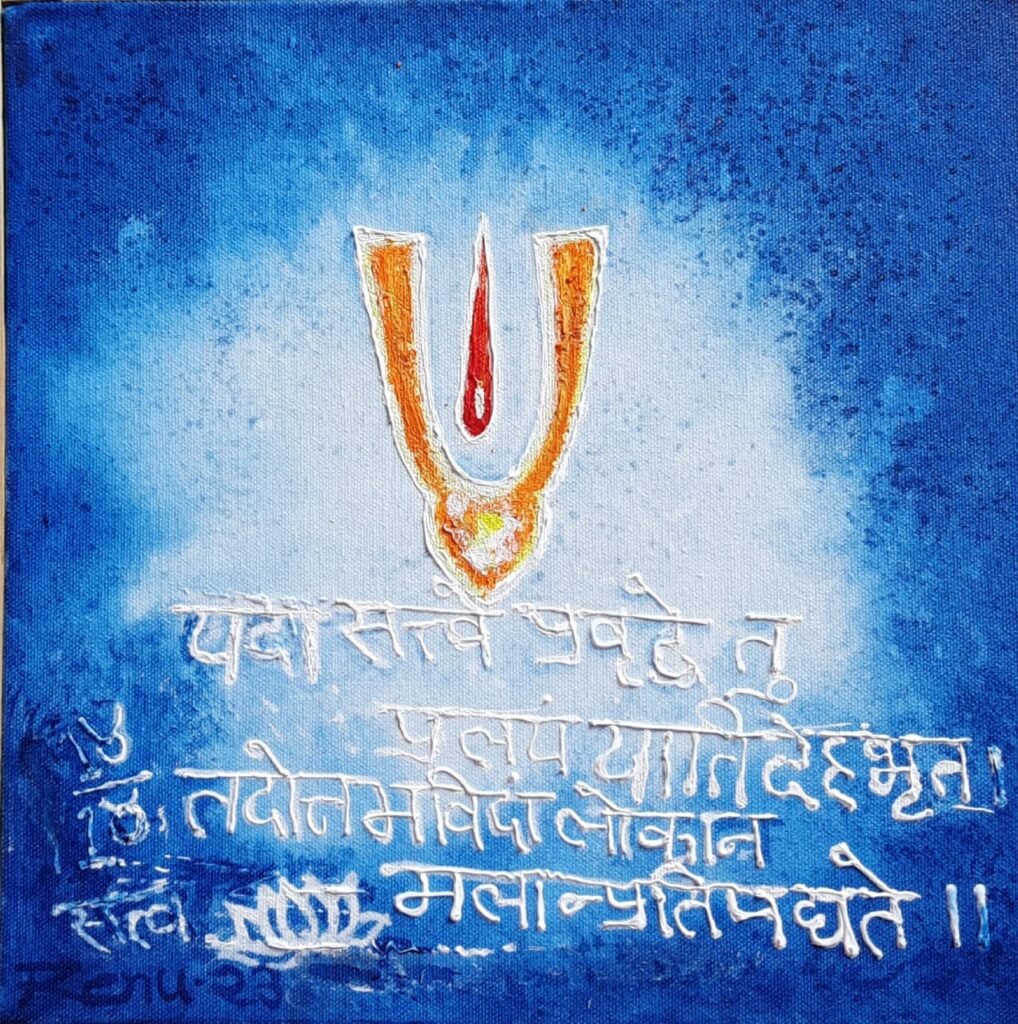 यदा सत्त्वे प्रवृद्धे तु
प्रलयं याति देहंभृत् ।
तदोत्तमविदां लोकान
मलान्प्रतिपद्यते ॥
सत्त्व
Renu-23